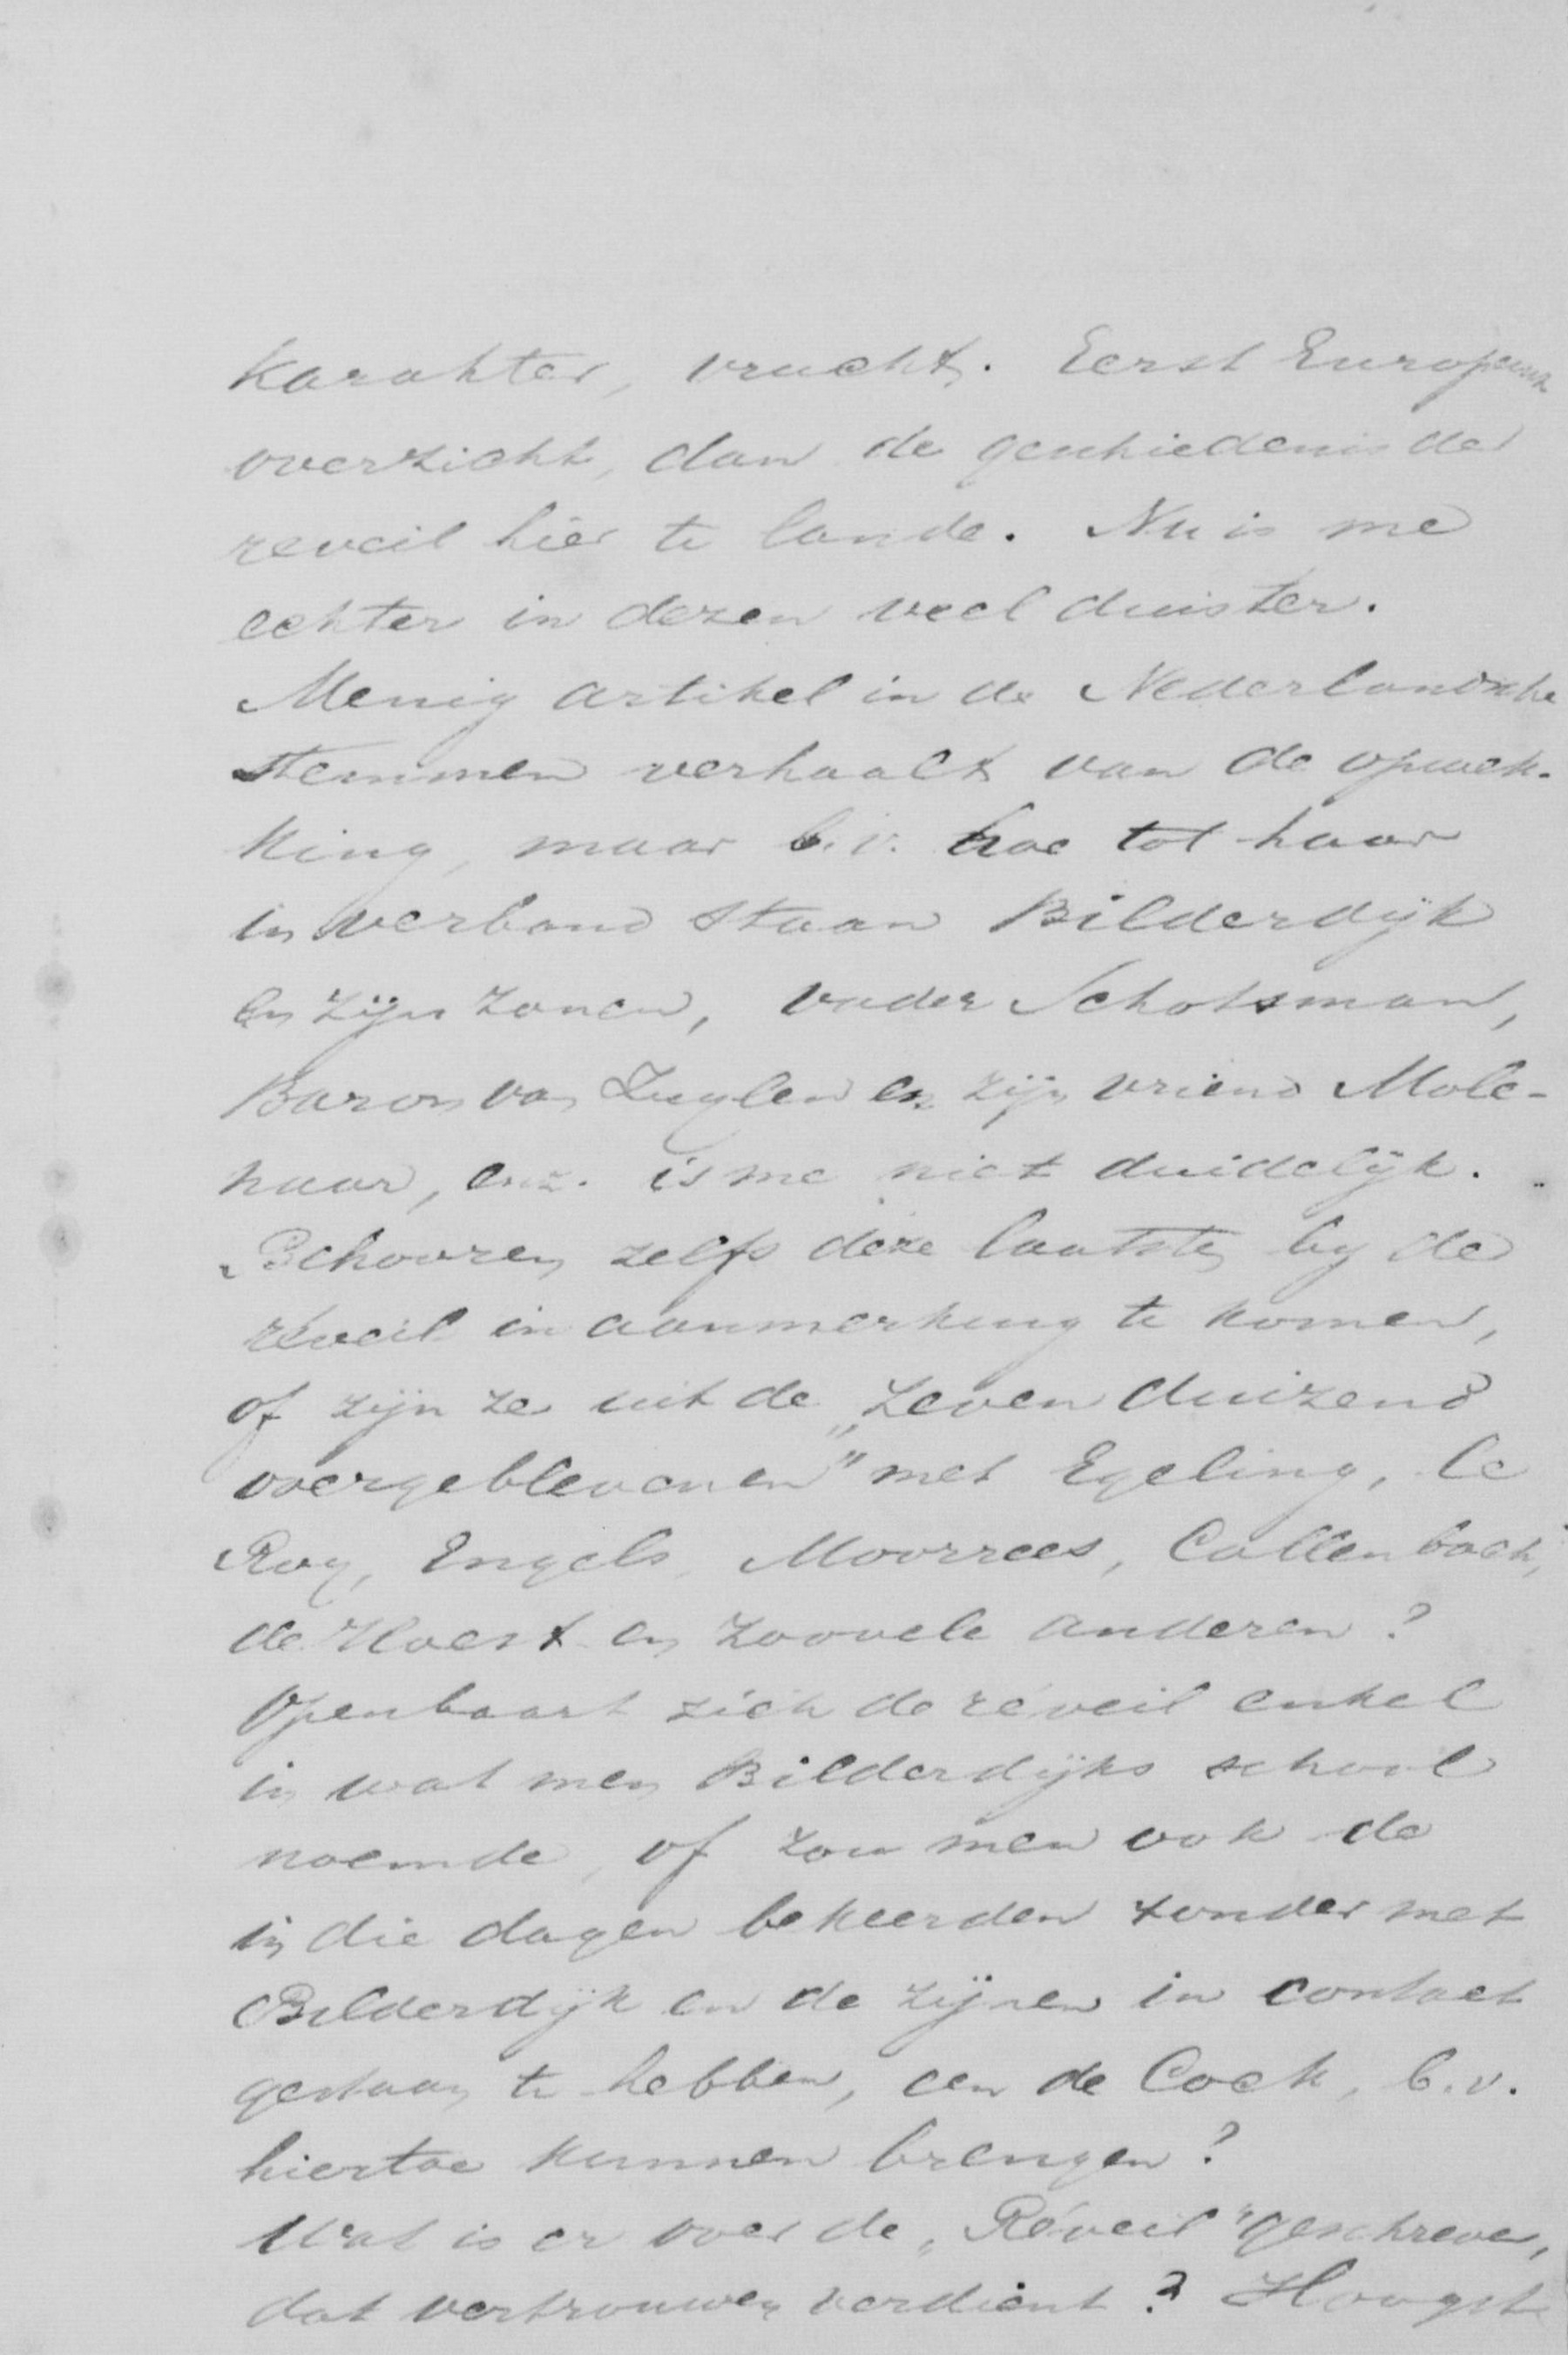 karakter, vrucht. Eerst Europeesch
overzicht, dan de geschiedenis der
reveil hier te lande. Nu is me
echter in dezen veel duister.
Menig artikel in de Nederlandsche
stemmen verhaalt van de opwek-
king, maar b.v. hoe tot haar
in verband staan Bilderdijk
en zijn zonen, vader Schotsman,
Baron van Zuylen en zijn vriend Mole-
naar, enz. is me niet duidelijk.
Behooren zelfs deze laatsten by de
réveil in aanmerking te komen,
of zijn ze uit de „zeven duizend
overgeblevenen" met Egeling, le
Roy, Engels, Moorrees, Callenbach,
de Hoest en zoovele anderen?
Openbaart zich de réveil enkel
in wat men Bilderdijks school
noemde, of zou men ook de
in die dagen bekeerden zonder met
Bilderdijk en de zijnen in contact
gestaan te hebben, een de Cock, b.v.
hiertoe kunnen brengen?
Wat is er over de „Réveil" geschreven,
dat vertrouwen verdient? Hoogst